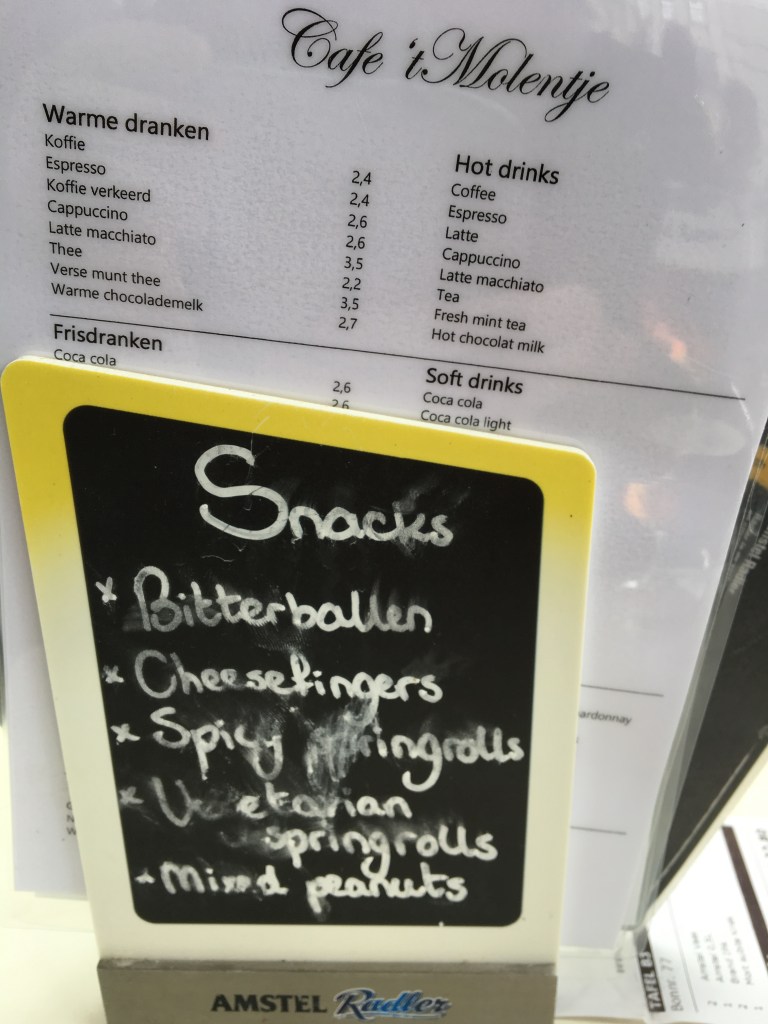 Cafe 't Molentje
Warme dranken
Koffie 2,4
Espresso 2,4
Koffie verkeerd 2,6
Cappuccino 2,6
Latte macchiato 3,5
Thee 2,2
Verse munt thee 3,5
Warme chocolademelk 2,7
Hot drinks
Coffee
Espresso
Latte
Cappuccino
Latte macchiato
Tea
Fresh mint tea
Hot chocolat milk
Frisdranken
Coca cola 2,6
2,6
Soft drinks
Coca cola
Coca cola light
Snacks
x Bitterballen
x Cheesefingers
x Spicy springrolls
x Vegetarian
springrolls
x Mixed peanuts
AMSTEL Radler
TAFEL 83
Bonnr. 77